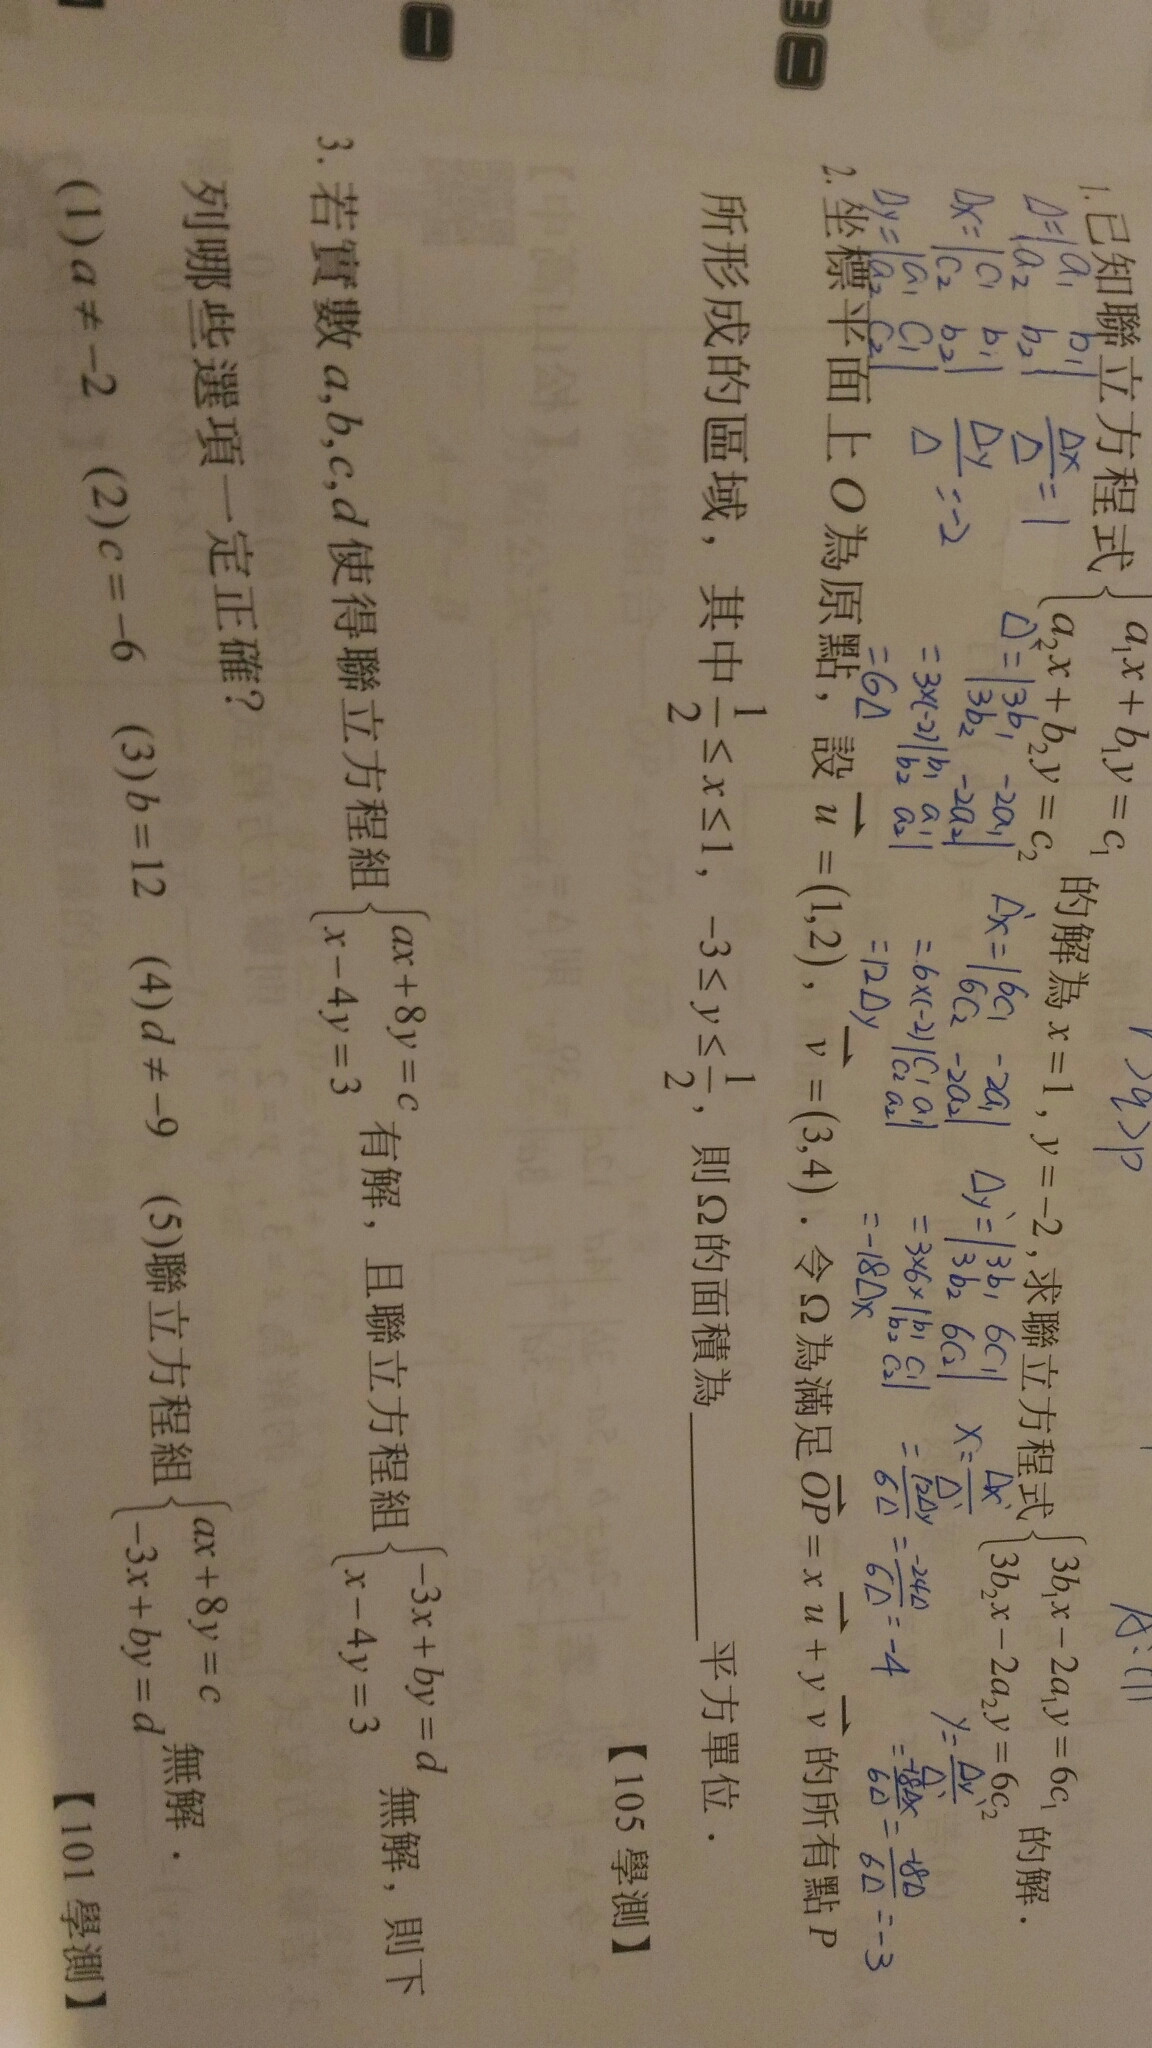 1. 已知聯立方程式{a₁x+b₁y=c₁ 的解為x=1, y=-2, 求聯立方程式{3b₁x-2a₁y=6c₁ 的解.
a₂x+b₂y=c₂ 3b₂x-2a₂y=6c₂
Δ=|a₁ b₁| Δx/Δ=1
|a₂ b₂|
Δx=|c₁ b₁| Δy/Δ=-2
|c₂ b₂|
Δy=|a₁ c₁|
|a₂ c₂|
Δ'=|3b₁ -2a₁|
|3b₂ -2a₂|
=3×(-2)|b₁ a₁|
|b₂ a₂|
=6Δ
Δx'=|6c₁ -2a₁|
|6c₂ -2a₂|
=6×(-2)|c₁ a₁|
|c₂ a₂|
=12Δy
Δy'=|3b₁ 6c₁|
|3b₂ 6c₂|
=3×6×|b₁ c₁|
|b₂ c₂|
=-18Δx
x=Δx'/Δ'
=12Δy/6Δ=-24Δ/6Δ=-4
y=Δy'/Δ'
=-18Δx/6Δ=-18Δ/6Δ=-3
2. 坐標平面上O為原點，設u=(1,2)，v=(3,4). 令Ω為滿足OP=xu+yv的所有點P
所形成的區域，其中1/2≤x≤1，-3≤y≤1/2，則Ω的面積為______平方單位.
【105 學測】
3. 若實數a,b,c,d使得聯立方程組{ax+8y=c 有解，且聯立方程組{-3x+by=d 無解，則下
x-4y=3 x-4y=3
列哪些選項一定正確?
(1)a≠-2 (2)c=-6 (3)b=12 (4)d≠-9 (5)聯立方程組{ax+8y=c 無解.
-3x+by=d
【101 學測】
一
三二